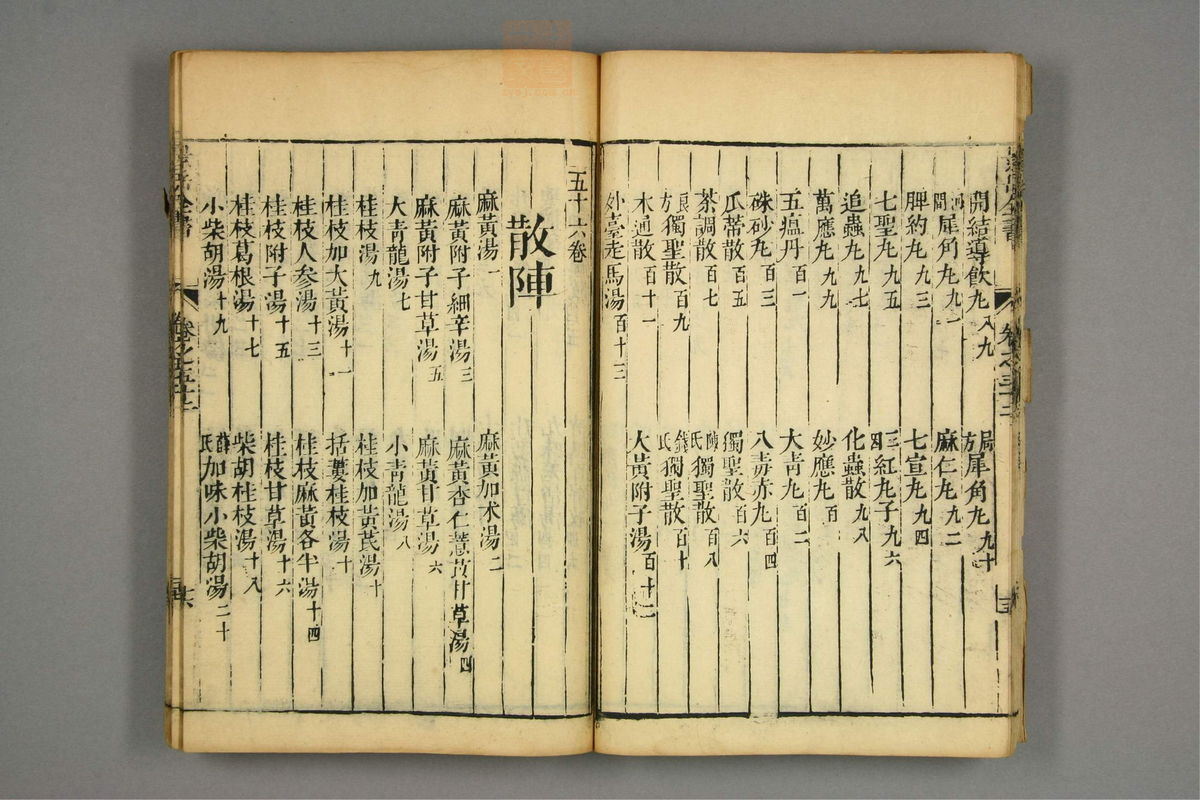 開結導飲丸 八九
局方犀角丸 九十
犀角丸 九一
麻仁丸 九二
脾約丸 九三
七宣丸 九四
七聖丸 九五
三因紅丸子 九六
追蟲丸 九七
化蟲散 九八
萬應丸 九九
妙應丸 百
五瘟丹 百一
大青丸 百二
硃砂丸 百三
八毒赤丸 百四
瓜蒂散 百五
獨聖散 百六
茶調散 百七
陳氏獨聖散 百八
良方獨聖散 百九
錢氏獨聖散 百十
木通散 百十一
大黃附子湯 百十二
妙臺走馬湯 百十三
五十六卷
散陣
麻黃湯 一
麻黃加朮湯 二
麻黃附子細辛湯 三
麻黃杏仁薏苡甘草湯 四
麻黃附子甘草湯 五
麻黃甘草湯 六
大青龍湯 七
小青龍湯 八
桂枝湯 九
桂枝加黃芪湯 十
桂枝加大黃湯 十一
括蔞桂枝湯 十
桂枝人參湯 十三
桂枝麻黃各半湯 十四
桂枝附子湯 十五
桂枝甘草湯 十六
桂枝葛根湯 十七
柴胡桂枝湯 十八
小柴胡湯 十九
薛氏加味小柴胡湯 二十
景岳全書